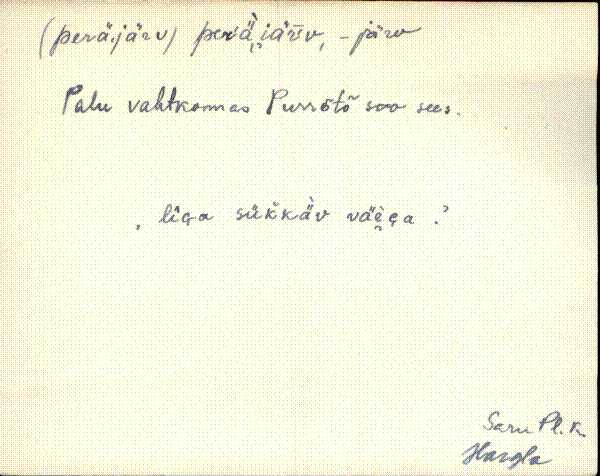 (perä,järv) perä̀i̯ärv, -järv
Palu vahtkonnas Purrõtõ soo sees.
, liga sükkäv väega.’
Saru Pl. K.
Hargla